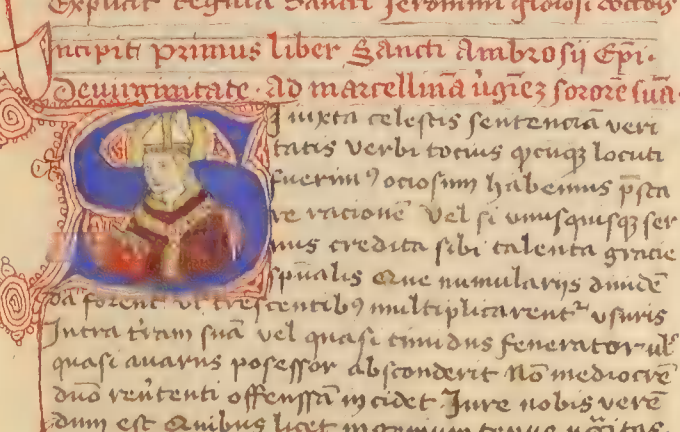 Explicit regula Sancti Jeronimi gloiosi doctois
Incipit primus liber Sancti Ambrosij Epi.
De uirginitate. Ad marcellinā ūgīez sororē suā.
S iuxta celestis sentenciā veri
tatis verbi tocius qcūqȝ locuti
fuerimꝰ ociosum habemus psta
re racionē vel si unusquisqȝ ser
uus credita sibi talenta gracie
spūalis Que numularijs diuidē
da forent ut crescentibꝰ multiplicarentᷣ usuris
Intra trram suā vel quasi timidus fenerator ul
quasi auarus posessor absconderit Nō mediocrē
duo reūtenti offenssam incidet. Jure nobis verē
dum est Quibus licet ingenium tenue